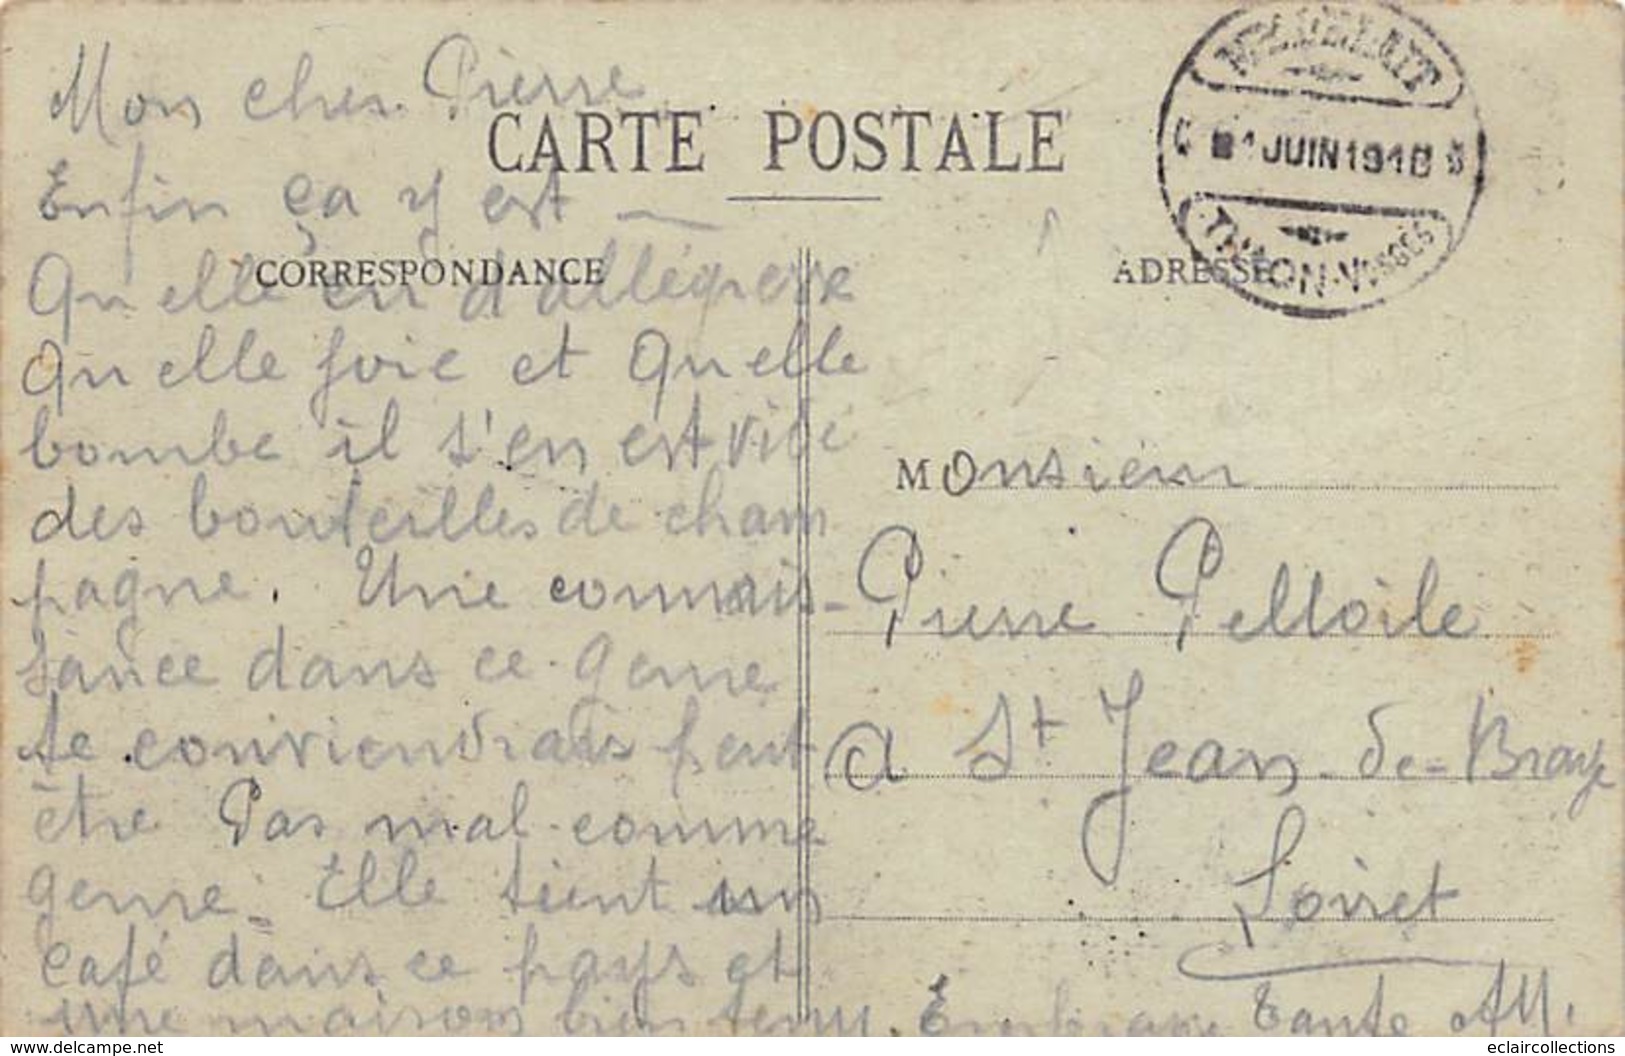 Mon cher Pierre
CARTE POSTALE
Enfin ça y est —
CORRESPONDANCE
Quelle d'allégresse
Quelle joie et Quelle
bombe il s'en est vidé
des bouteilles de cham
pagne. Une connais-
sance dans ce genre
te conviendrais peut
être Pas mal comme
genre. Elle tient un
café dans ce pays et
une maison bien tenu.
1 JUIN 191
THAON-VOSGES
ADRESSE
Monsieur
Pierre Pelloile
A St Jean-de-Braye
Loiret
Tante
www.delcampe.net
eclaircollections